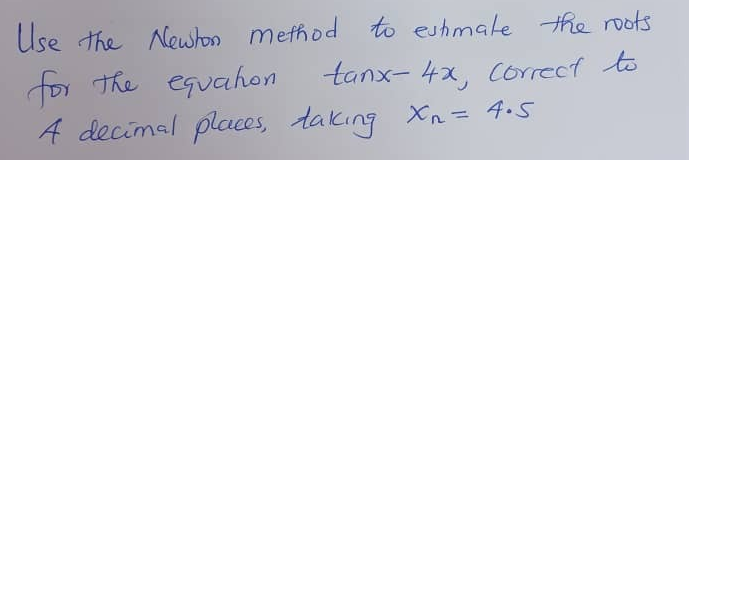 Use the Newton method to estimate the roots
for the equation tanx - 4x, correct to
4 decimal places, taking Xn = 4.5